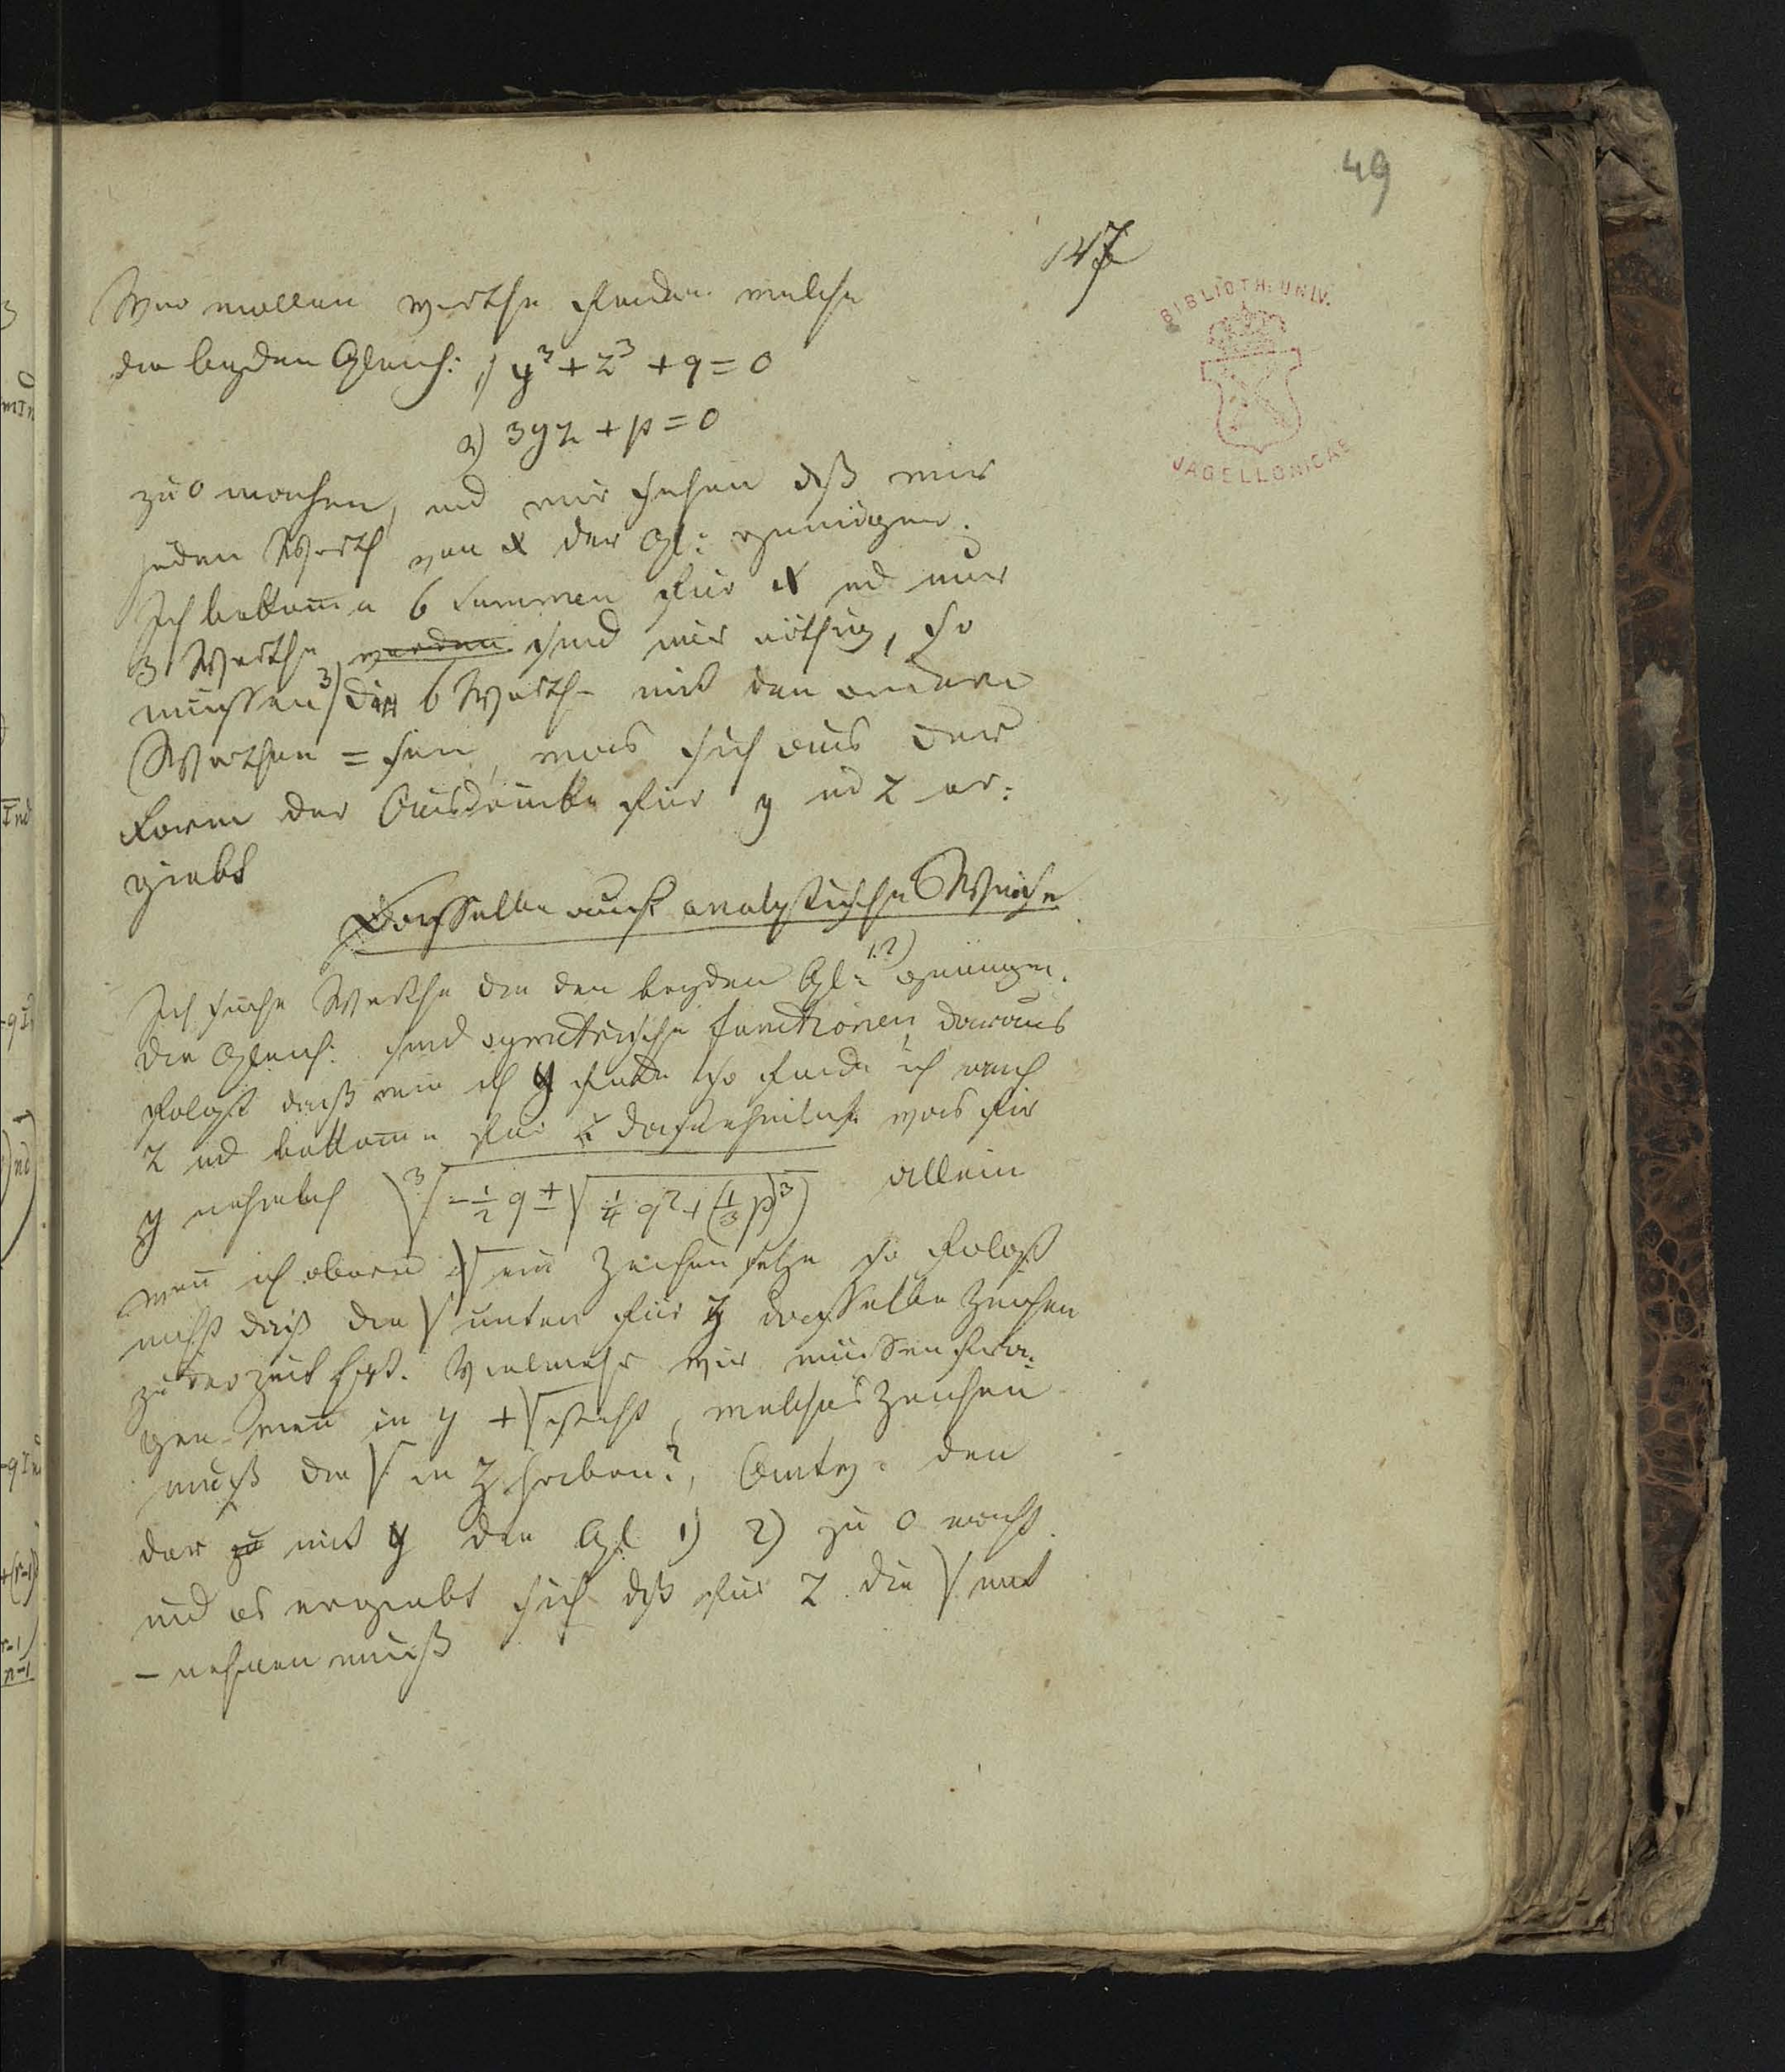 49
147
BIBLIOTH: UNIV.
JAGELLONICAE
Wir wollen werthe finden welche
die beyden Gleich: 1) y³ + z³ + q = 0
2) 3yz + p = 0
zu 0 machen, und wir sehen dß wir
jeden Werth von x der Gl: genügen.
Ich bekomme 6 Summen für x und nur
3 Werthe werden sind mir nöthig, so
müssen 3) die 6 Werthe mit den andern
Werthen = sein, was sich aus der
Form der Ausdrücke für y und z er:
giebt
Dasselbe auf analytische Weise
Ich suche Werthe die den beyden Gl: 1.2) genügen.
die Gleich: sind symetrische functionen daraus
folgt daß wenn ich y finde so finde ich auch
z und bekomme für z dasselbe was für
y nehmlich ∛(-½ q ± √(¼ q² + (⅓ p)³)) allein
wenn ich oben √ ein Zeichen setze so folgt
nicht daß die √ unten für z dasselbe Zeichen
Vielmehr wir müssen fra:
gen wenn in y + √ steht, welches Zeichen
muß die √ in z haben?, Antw: den
der zu mit y die Gl 1) 2) zu 0 macht.
und es ergiebt sich dß für z die √ mit
– nehmen muß